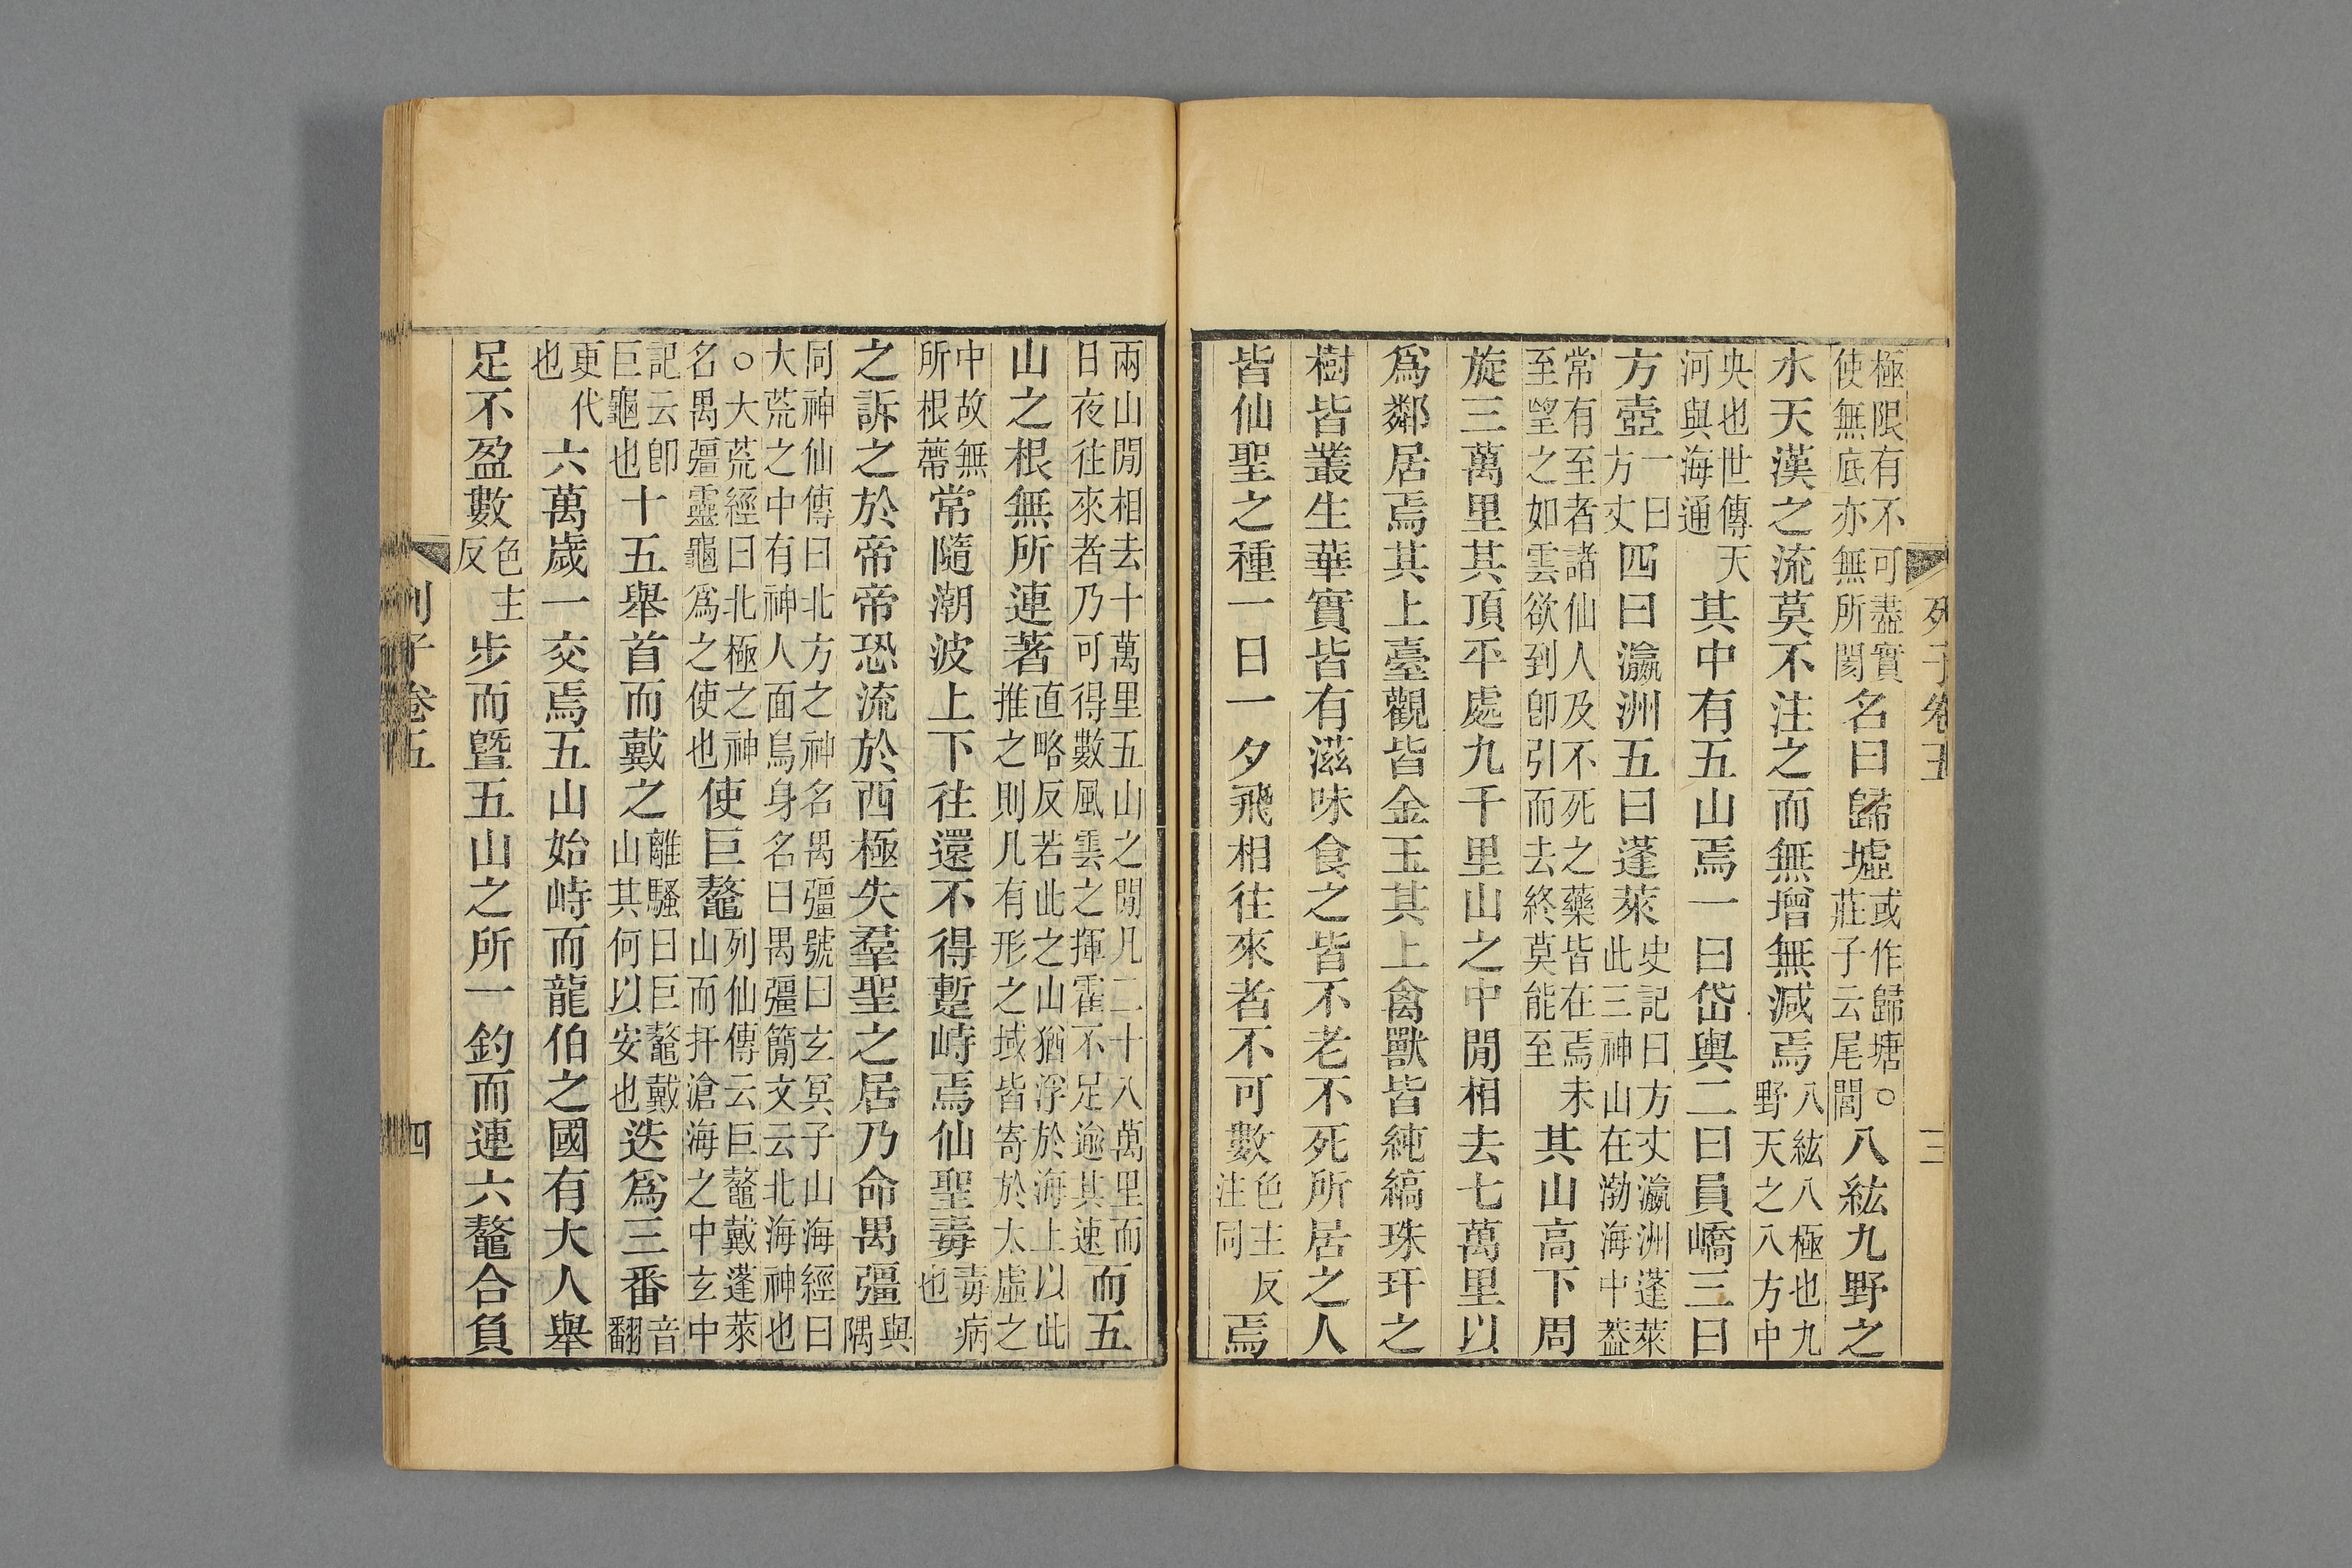 列子卷五
三
極限有不可盡實使無底亦無所閡名曰歸墟或作歸塘○莊子云尾閭八紘九野之
水天漢之流莫不注之而無增無減焉八紘八極也九野天之八方中
央也世傳天河與海通其中有五山焉一曰岱輿二曰員嶠三曰
方壺一曰方丈四曰瀛洲五曰蓬萊史記曰方丈瀛洲蓬萊此三神山在渤海中葢
常有至者諸仙人及不死之藥皆在焉未至望之如雲欲到卽引而去終莫能至其山高下周
旋三萬里其頂平處九千里山之中閒相去七萬里以
爲鄰居焉其上臺觀皆金玉其上禽獸皆純縞珠玕之
樹皆叢生華實皆有滋味食之皆不老不死所居之人
皆仙聖之種一日一夕飛相往來者不可數色主反注同焉
兩山閒相去十萬里五山之閒凡二十八萬里而日夜往來者乃可得數風雲之揮霍不足逾其速而五
山之根無所連著直略反若此之山猶浮於海上以此推之則凡有形之域皆寄於太虛之
中故無所根蔕常隨潮波上下往還不得蹔峙焉仙聖毒毒病也
之訴之於帝帝恐流於西極失羣聖之居乃命禺彊與隅
同神仙傳曰北方之神名禺彊號曰玄冥子山海經曰大荒之中有神人面鳥身名曰禺彊簡文云北海神也
○大荒經曰北極之神名禺彊靈龜爲之使也使巨鼇列仙傳云巨鼇戴蓬萊山而抃滄海之中玄中
記云卽巨龜也十五舉首而戴之離騷曰巨鼇戴山其何以安也迭爲三番音翻
更代也六萬歲一交焉五山始峙而龍伯之國有大人舉
足不盈數色主反步而曁五山之所一釣而連六鼇合負
列子卷五
四